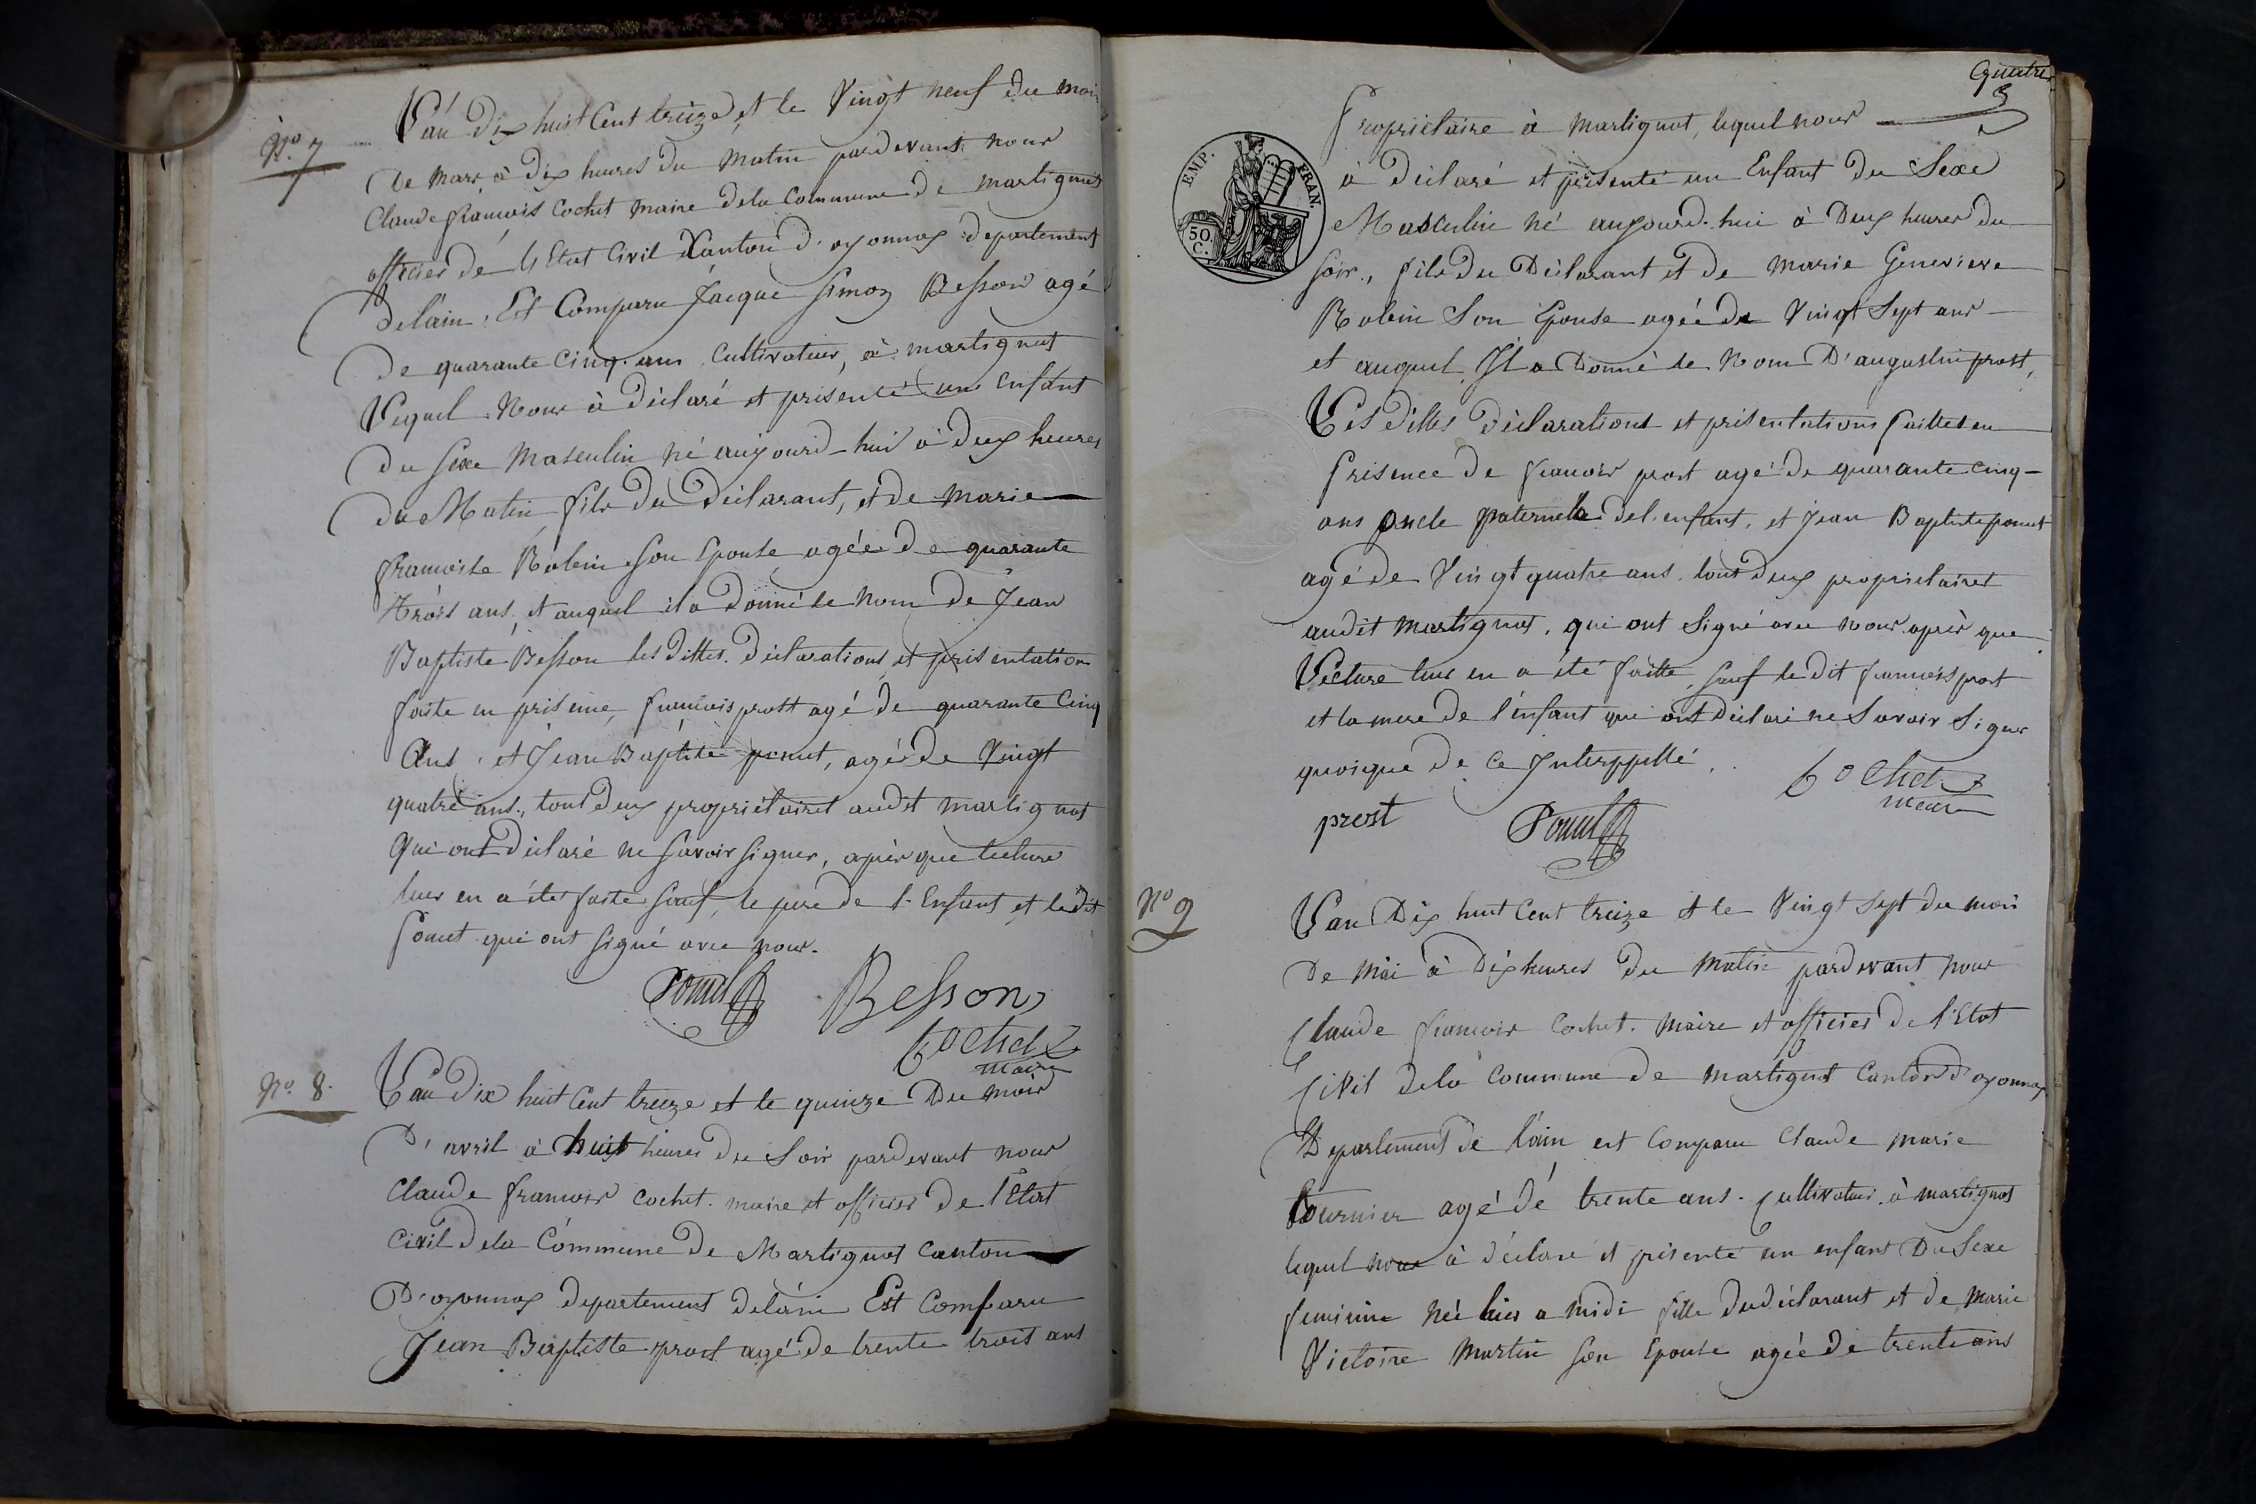 N.º 7
L'an Dix huit Cent treize et le Vingt neuf du mois
de mars à dix heures du matin pardevant nous
Claude françois Cochet maire dela Commune de martignat
officier de l'Etat Civil Canton d'oyonnax departement
delain. Est Comparu Jacque Simon Besson agé
de quarante Cinq ans Cultivateur, à martignat
Lequel Nous à déclaré et presenté un enfant
du sexe Masculin né aujourd-hui à deux heures
du Matin fils du déclarant, et de marie
françoise Robin son Epouse agée de quarante
trois ans, et auquel il a donné le nom de Jean
Baptiste Besson les dittes déclarations et présentation
faite en présence, françois prost agé de quarante Cinq
Ans, et Jean Baptiste ponut, agé de Vingt
quatre ans, tout deux propriétaires audit martignat
Qui ont déclaré ne savoir signer, après que lecture
leur en a été faite sauf, le pere de l'Enfant et le dit
ponut qui ont signé avec nous.
Ponut Besson
Cochet
maire
Nº 8.
L'an dix huit Cent treize et le quinze Du mois
D'avril à huit heures du Soir pardevant nous
Claude françois cochet maire et officier de l'Etat
Civil dela Commune de Martignat Canton
D'oyonnax departement delain Est Comparu
Jean Baptiste prost agé de trente trois ans
quatre
Propriétaire à martignat, lequel nous
EMP. FRAN.
50 C.
à déclaré et présenté un Enfant du Sexe
Masculin né aujourd-hui à Deux heures du
soir, fils du Déclarant et de marie Genevieve
Robin Son Epouse agée de Vingt Sept ans
et auquel Il a Donné le Nom D'augustin prost,
Les dittes déclarations et présentations faittes en
présence de françois prost agé de quarante cinq
ans oncle paternel del'enfant, et Jean Baptiste ponut
agé de Vingt quatre ans tout deux propriétaires
audit martignat, qui ont Signé avec nous après que
Lecture leur en a été faitte, sauf le dit françois prost
et la mere de l'enfant qui ont déclaré ne Savoir Signer
quoique de Ce Interppellé.
Cochet
maire
prost Ponut
Nº 9
L'an Dix huit Cent treize et le Vingt Sept du mois
De mai à Dix heures du Matin pardevant nous
Claude françois Cochet maire et officier de l'Etat
Civil dela Commune de martignat Canton d'oyonnax
Departement de l'ain est Comparu Claude marie
tournier agé dé trente ans Cultivateur à martignat
lequel nous à déclaré et présenté un enfant Du Sexe
feminine née hier a midi fille du déclarant et de Marie
Victoire Martin son Epouse agée de trente ans